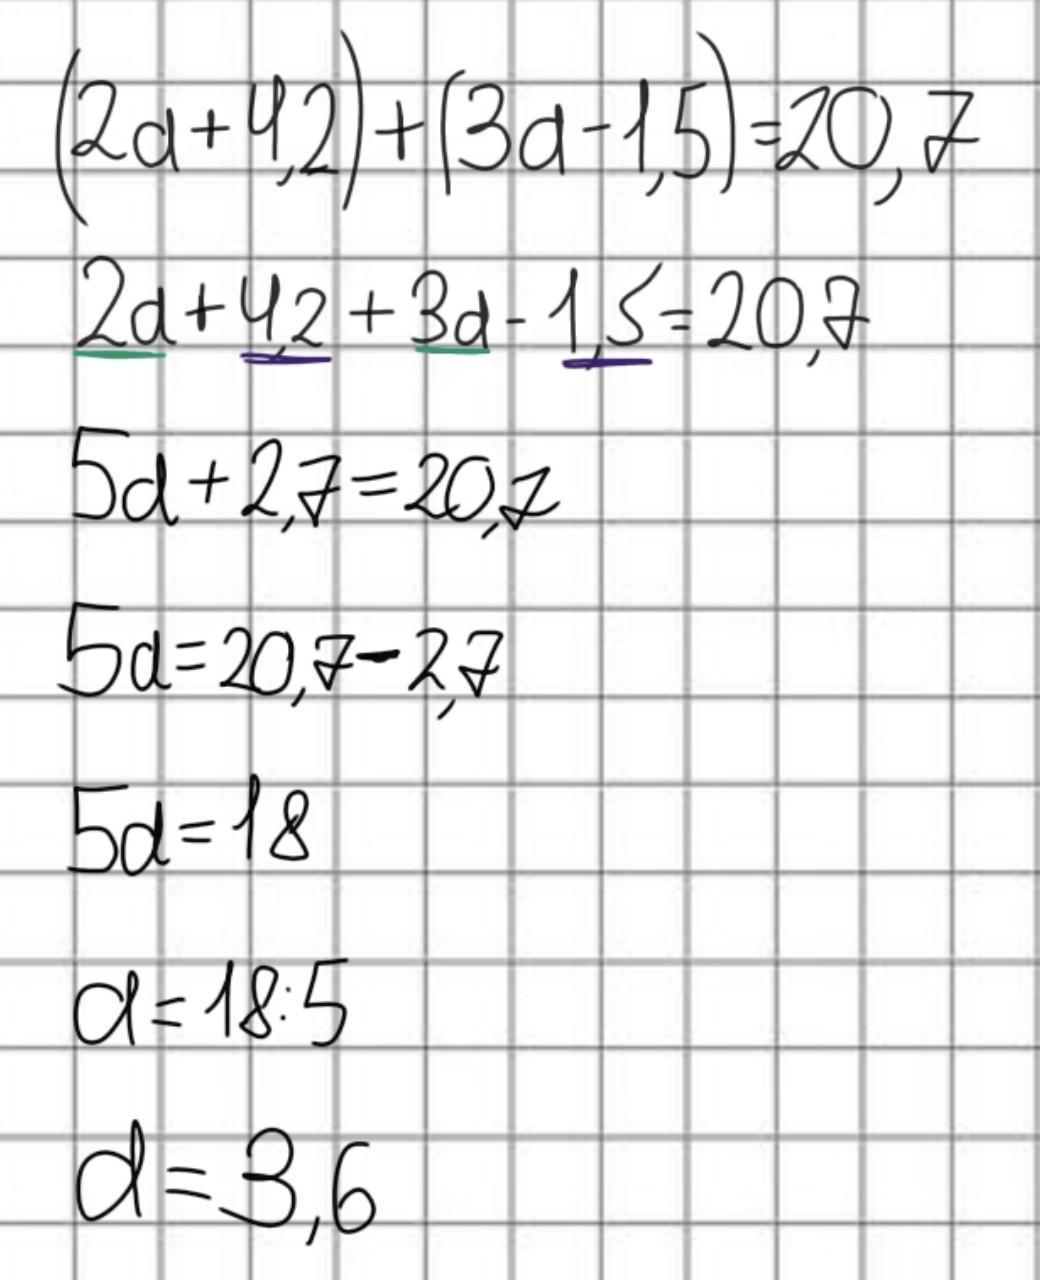 (2d+4,2)+(3d-1,5)=20,7
2d+4,2+3d-1,5=20,7
5d+2,7=20,7
5d=20,7-2,7
5d=18
d=18:5
d=3,6